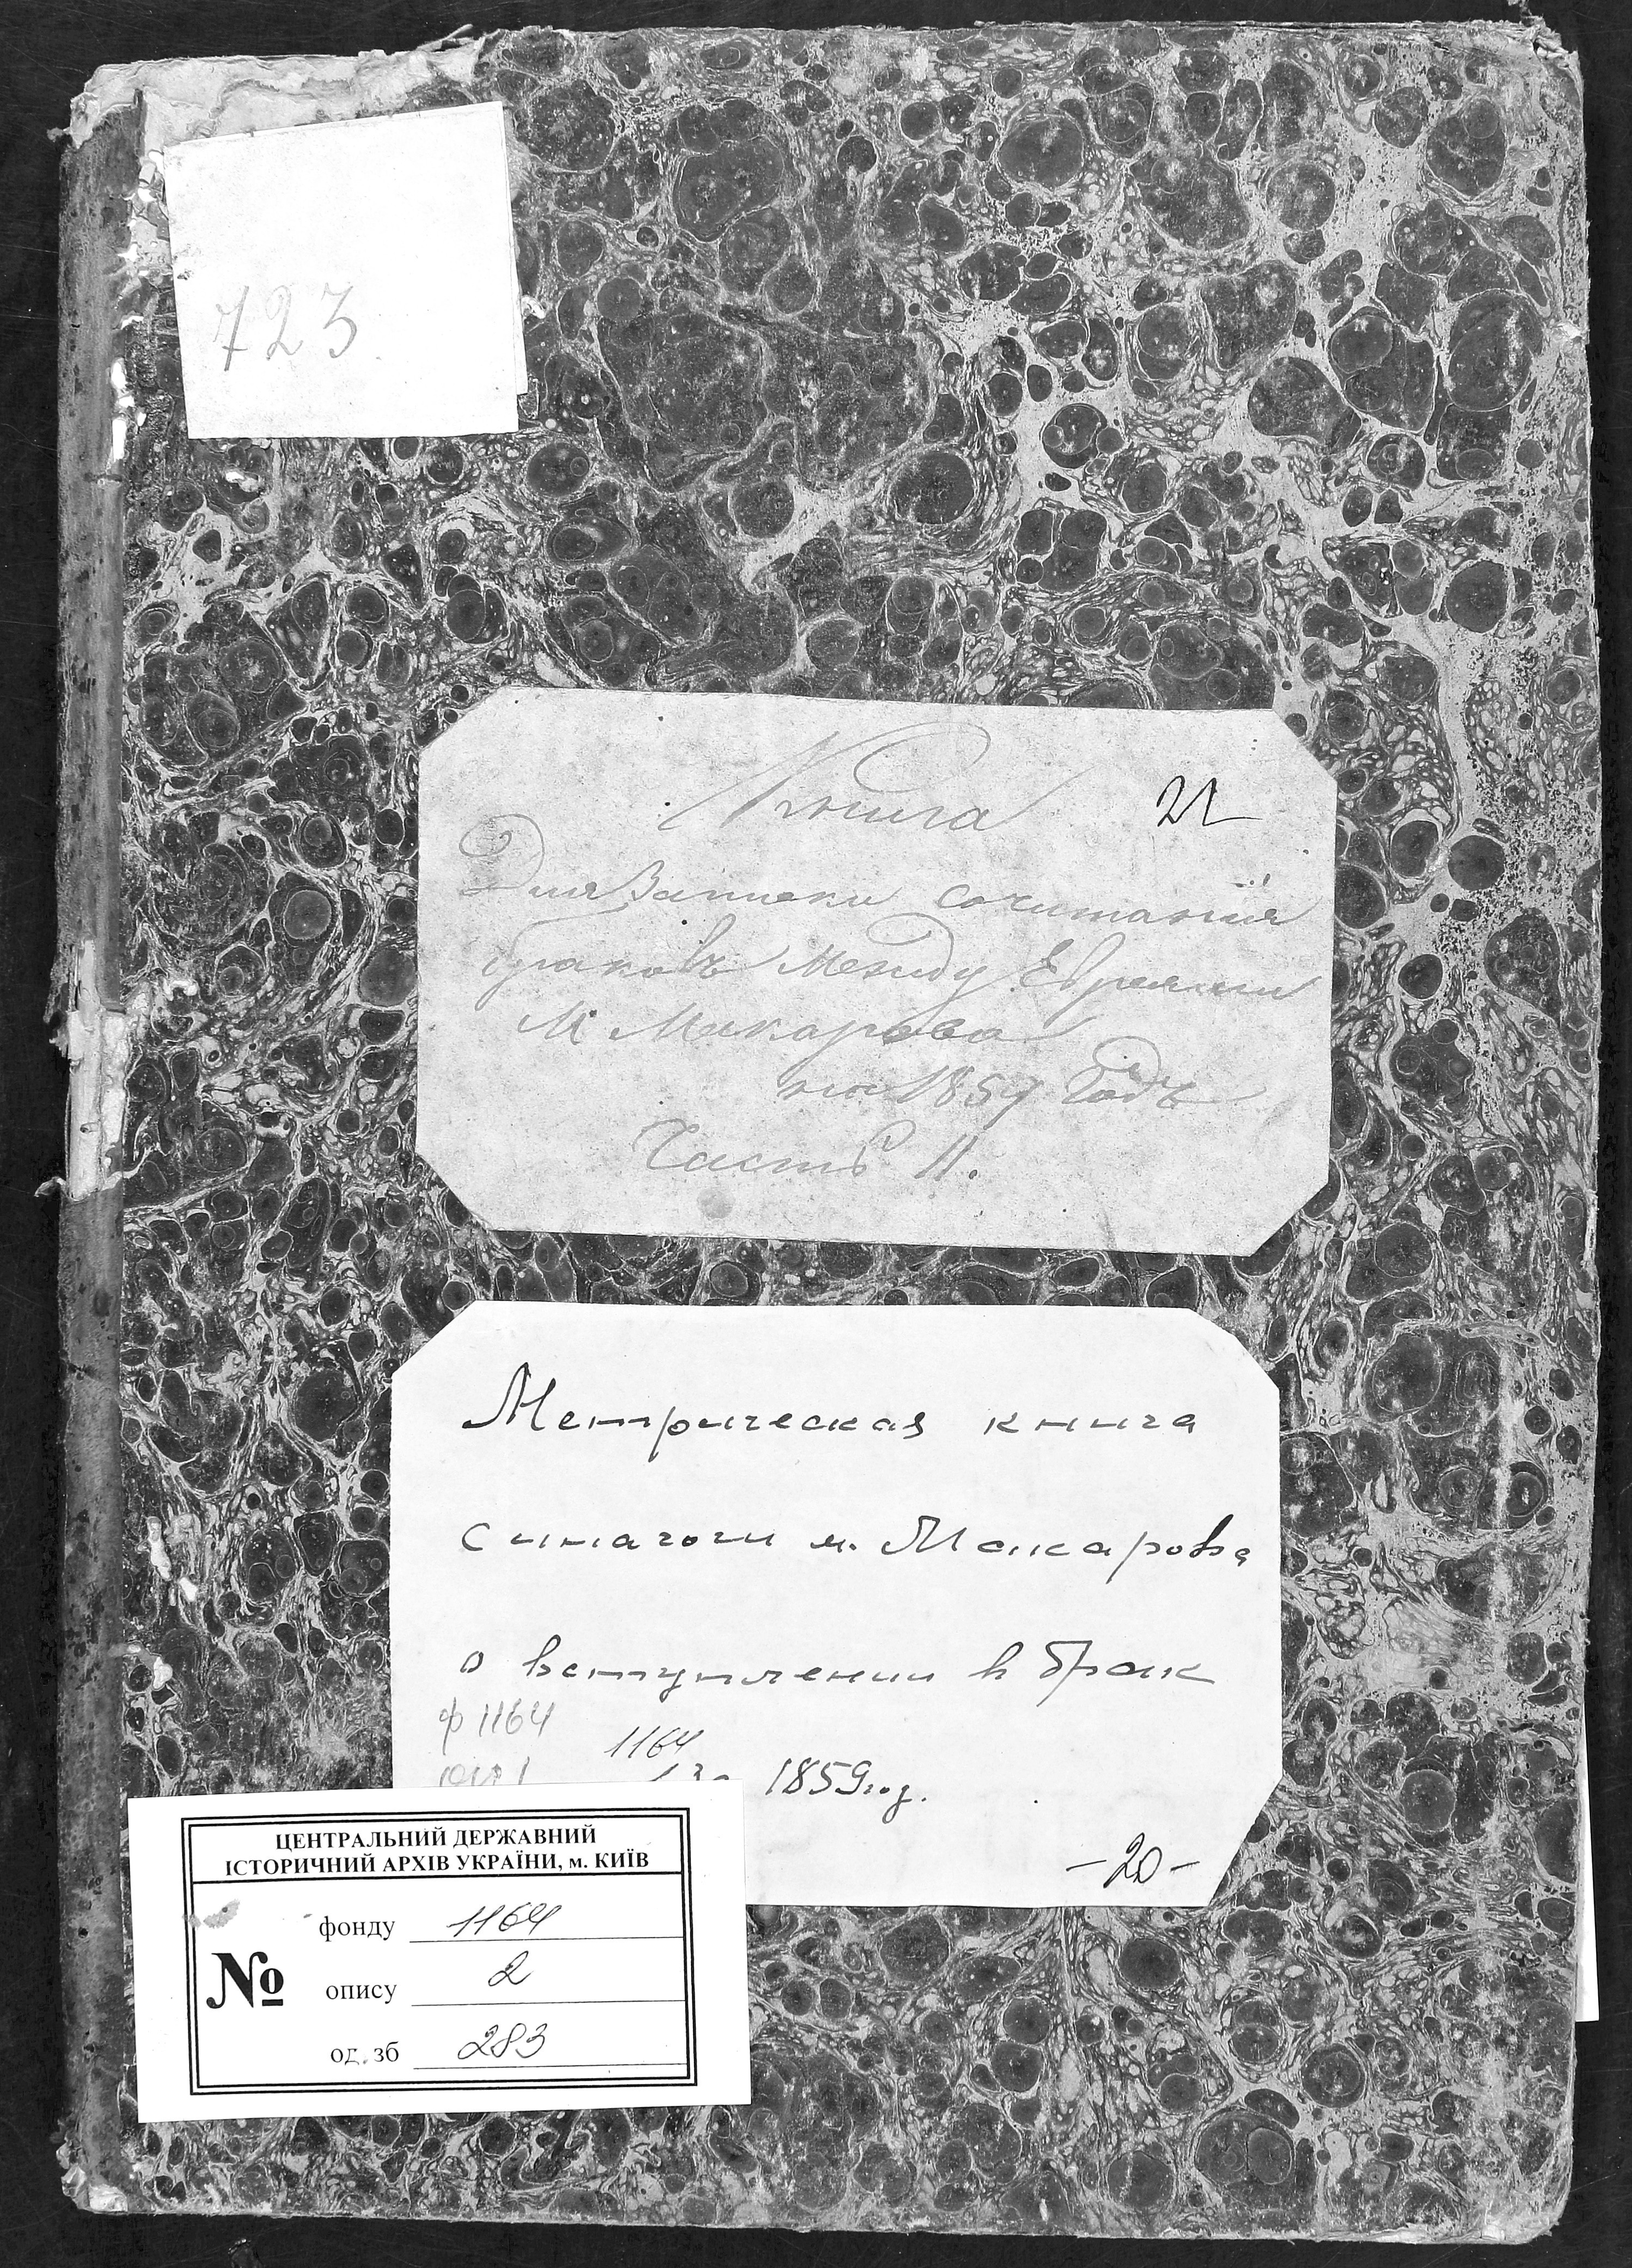 723
Книга 21
Для Записки сочитанія
браковъ Между Евреями
М Макарова
на 1859 Годъ
Часть II.
Метрическая книга
синагоги м. Макарова
о вступлении в брак
ф 1164
1164
оп 1
за 1859год.
-20-
ЦЕНТРАЛЬНИЙ ДЕРЖАВНИЙ
ІСТОРИЧНИЙ АРХІВ УКРАЇНИ, м. КИЇВ
№
фонду 1164
опису 2
од.зб 283